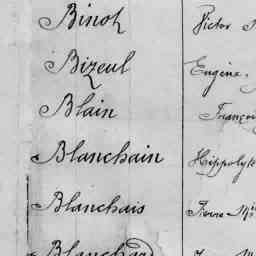 Binot Victor
Bizeul Eugène.
Blain François
Blanchain Hippolyte
Blanchais Pierre
Blanchard